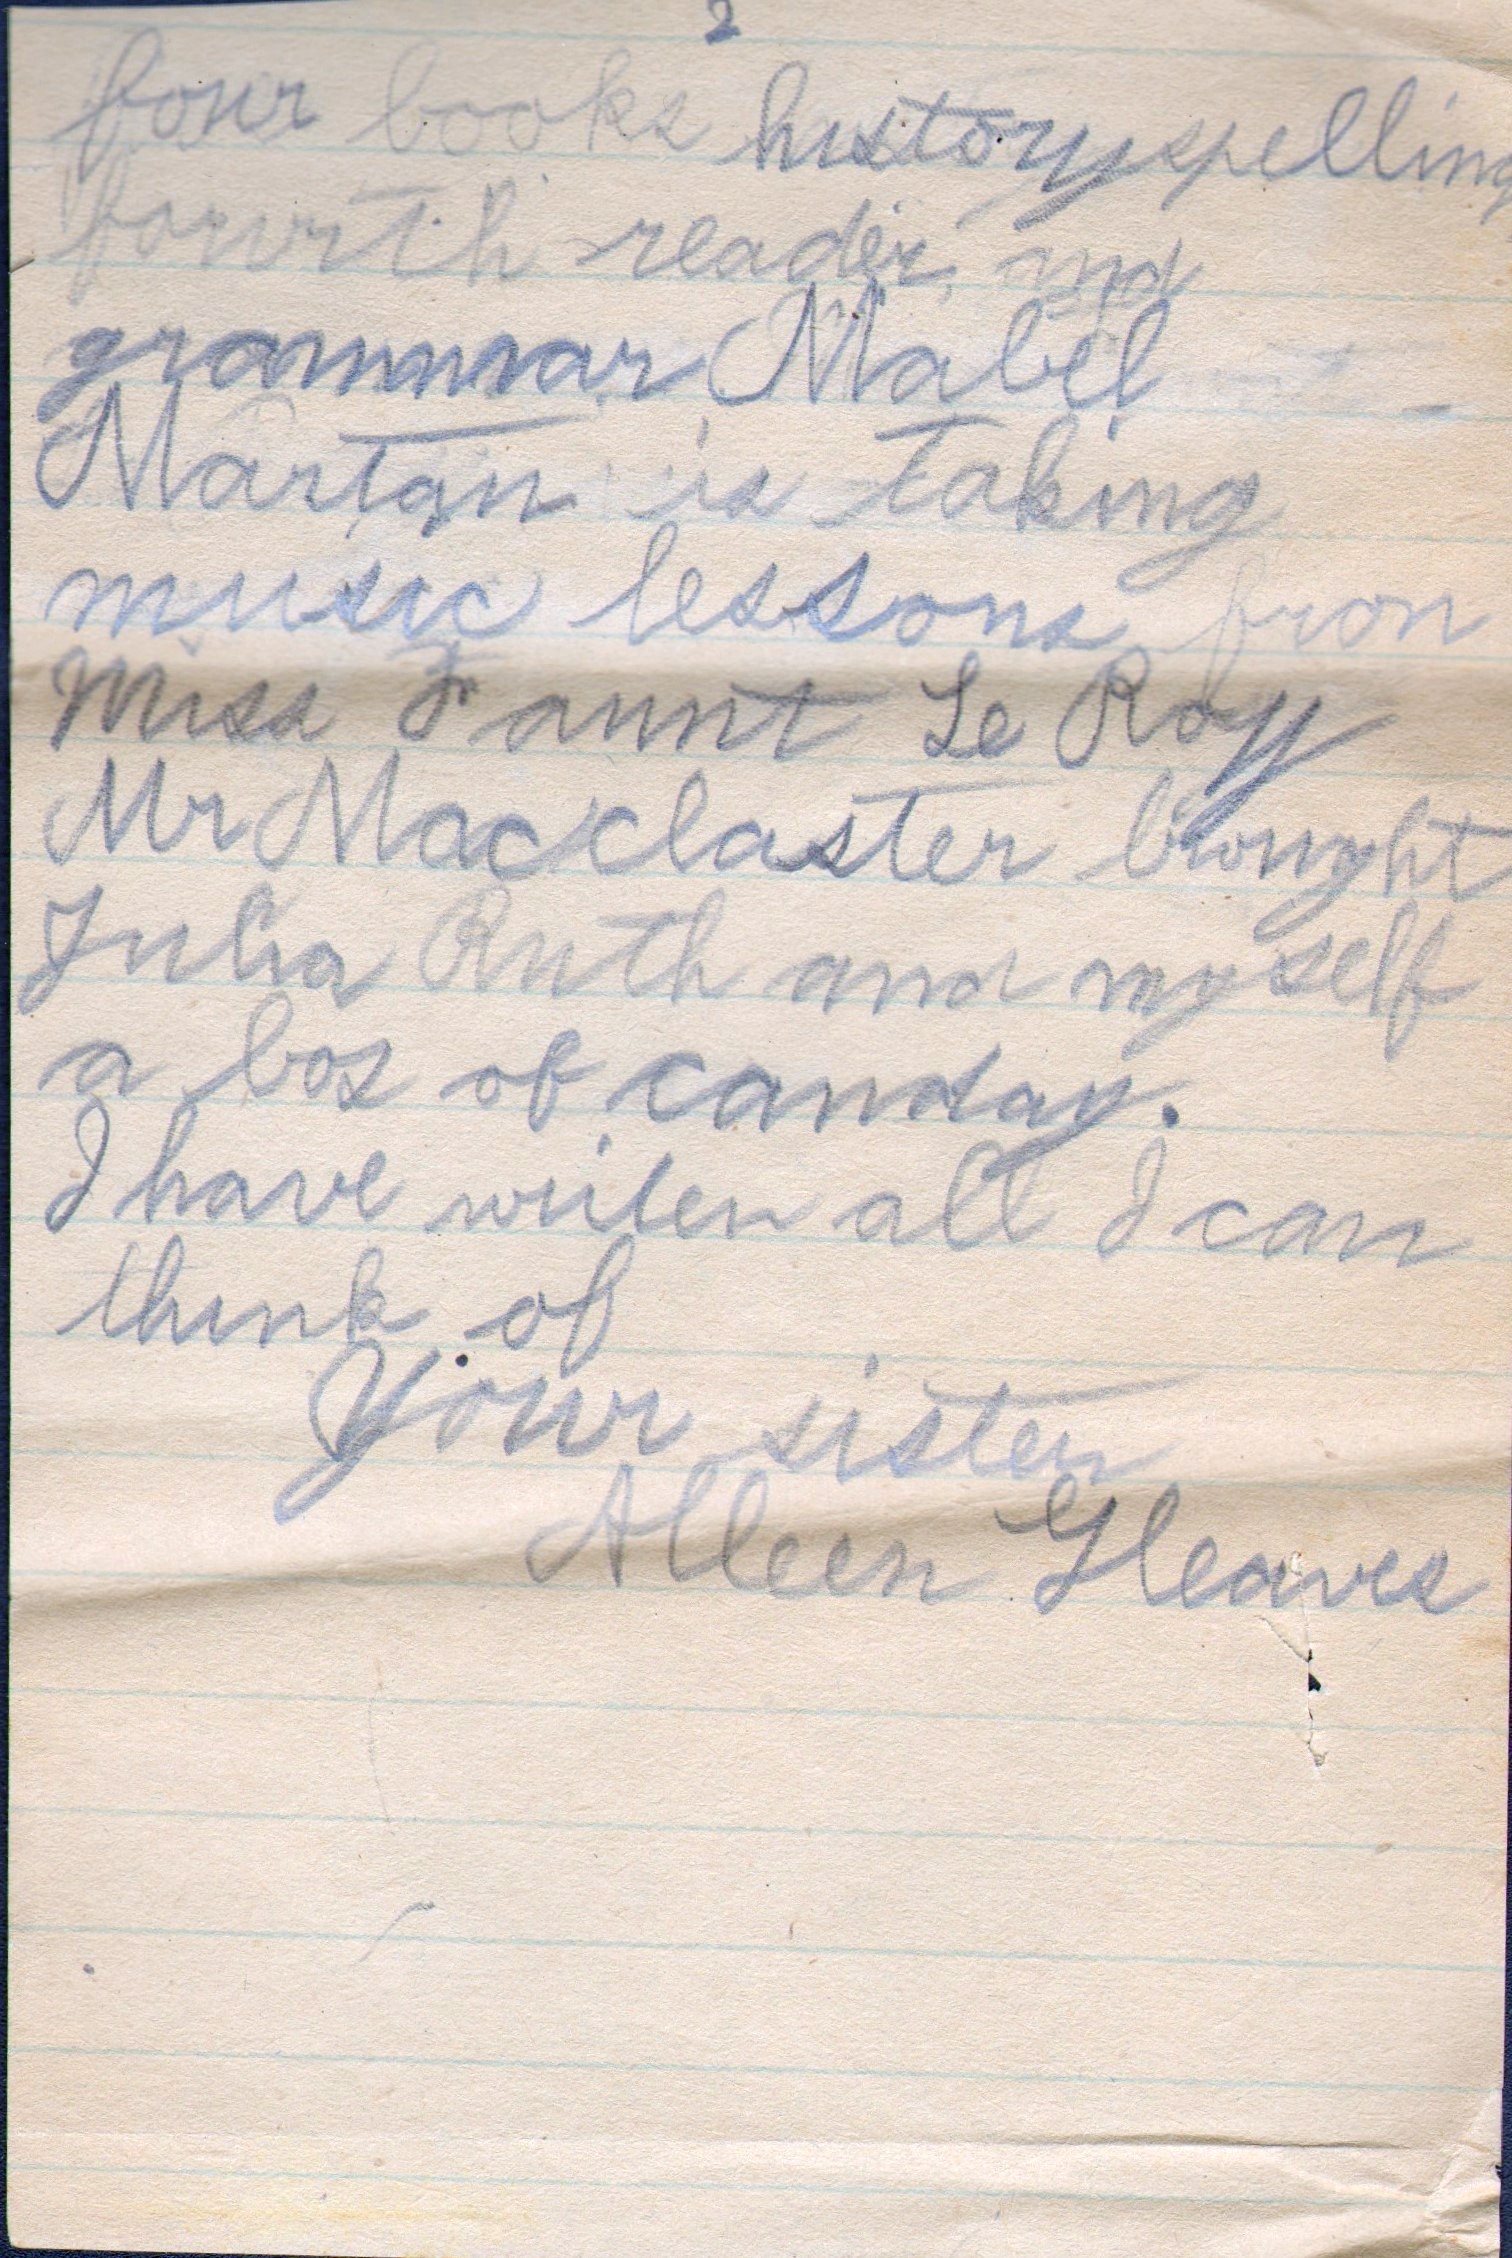 2
four books history, spelling
fourth reader, and
grammar, Mabel
Martan is taking
music lessons fron
Miss Faunt Le Roy
Mr Macclaster brought
Julia Ruth and myself
a box of canday.
I have writen all I can
think of
Your sister
Alleen Gleaves